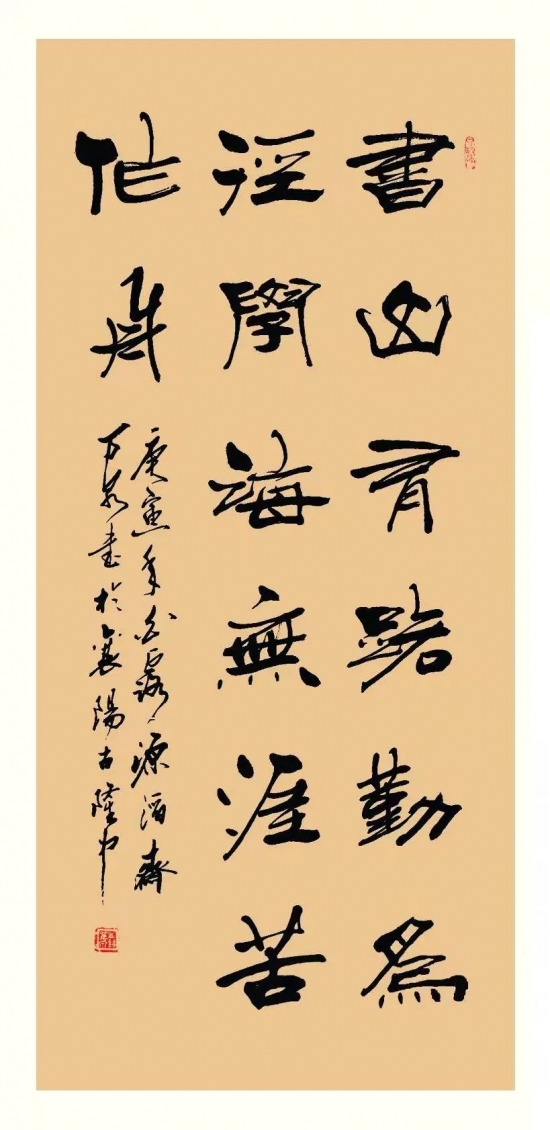 書山有路勤為
徑學海無涯苦
作舟
庚寅年白露源滔齋
万泉書於襄陽古隆中